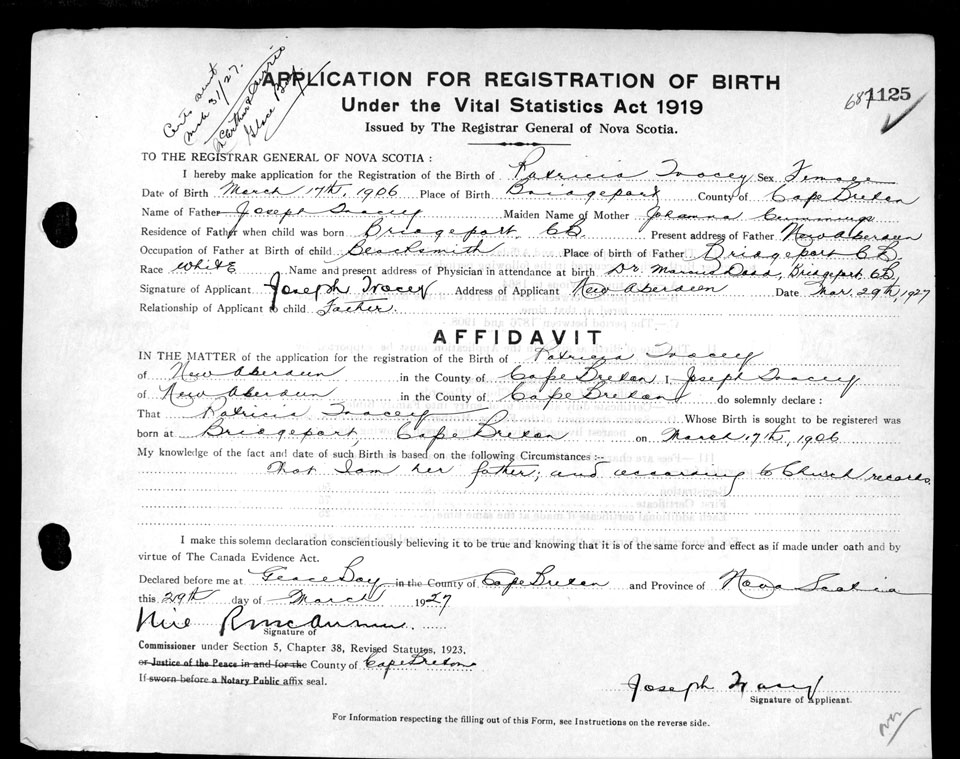 Certs sent
Mch 31/27.
Glace Bay.
APPLICATION FOR REGISTRATION OF BIRTH
687 1125
Under the Vital Statistics Act 1919
Issued by The Registrar General of Nova Scotia.
TO THE REGISTRAR GENERAL OF NOVA SCOTIA :
I hereby make application for the Registration of the Birth of Patricia Tracey Sex Female
Date of Birth March 17th, 1906 Place of Birth Bridgeport County of Cape Breton
Name of Father Joseph Tracey Maiden Name of Mother Johanna Cummings
Residence of Father when child was born Bridgeport, CB Present address of Father New Aberdeen
Occupation of Father at Birth of child Blacksmith Place of birth of Father Bridgeport C.B.
Race White Name and present address of Physician in attendance at birth Dr. Marcus Dodd, Bridgeport, CB
Signature of Applicant Joseph Tracey Address of Applicant New Aberdeen Date Mar. 29th, 1927
Relationship of Applicant to child Father.
AFFIDAVIT
IN THE MATTER of the application for the registration of the Birth of Patricia Tracey
of New Aberdeen in the County of Cape Breton I, Joseph Tracey
of New Aberdeen in the County of Cape Breton do solemnly declare :
That Patricia Tracey Whose Birth is sought to be registered was
born at Bridgeport, Cape Breton on March 17th, 1906
My knowledge of the fact and date of such Birth is based on the following Circumstances :--
That I am her father; and according to Church records.
I make this solemn declaration conscientiously believing it to be true and knowing that it is of the same force and effect as if made under oath and by
virtue of The Canada Evidence Act.
Declared before me at Glace Bay in the County of Cape Breton and Province of Nova Scotia
this 29th day of March 1927
Signature of
Commissioner under Section 5, Chapter 38, Revised Statutes, 1923,
or Justice of the Peace in and for the County of Cape Breton
If sworn before a Notary Public affix seal.
Joseph Tracey
Signature of Applicant.
For Information respecting the filling out of this Form, see Instructions on the reverse side.